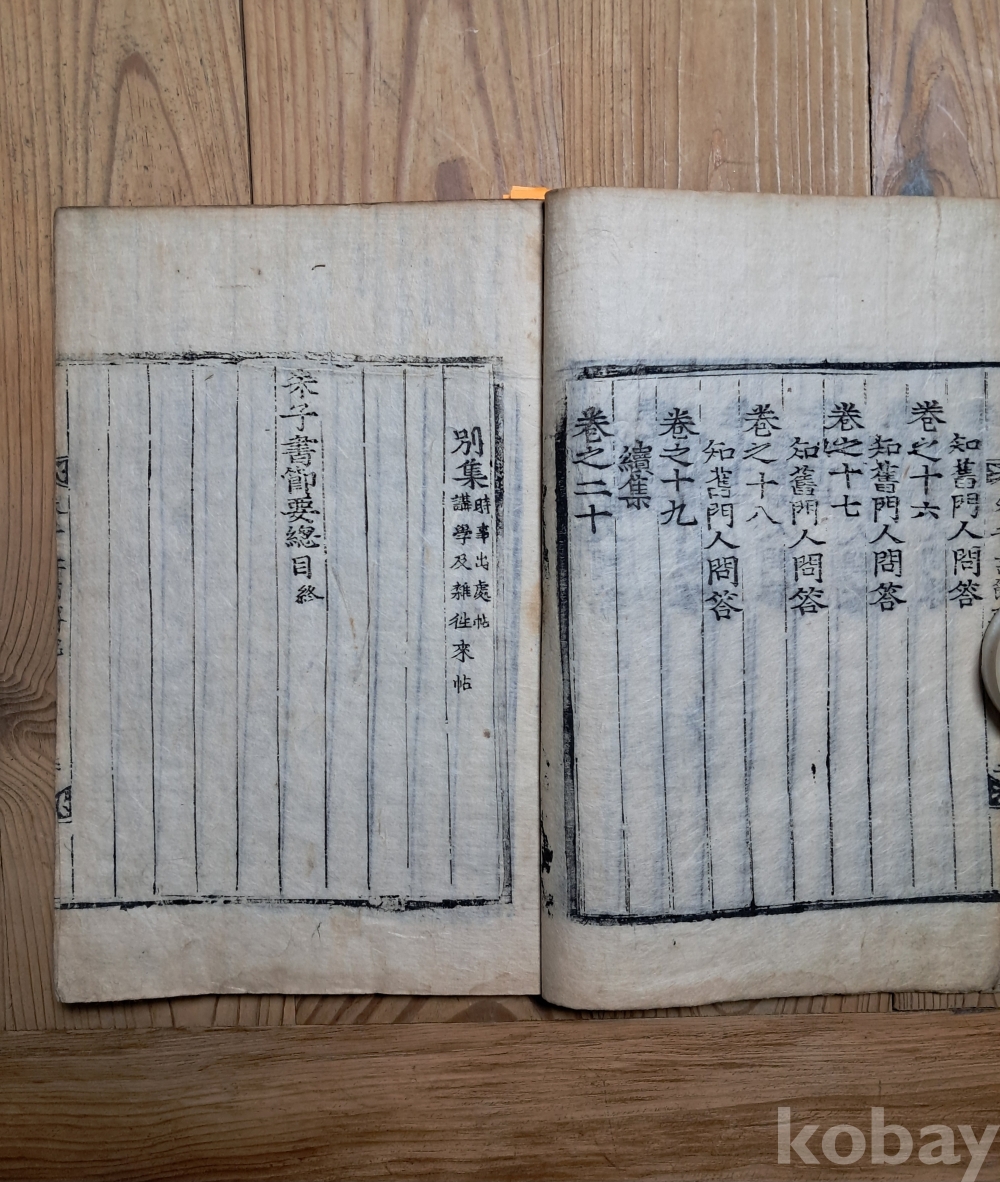 知舊門人問答
卷之十六
知舊門人問答
卷之十七
知舊門人問答
卷之十八
知舊門人問答
卷之十九
續集
卷之二十
別集 時事出處帖
講學及雜徃來帖
朱子書節要總目終
kobay